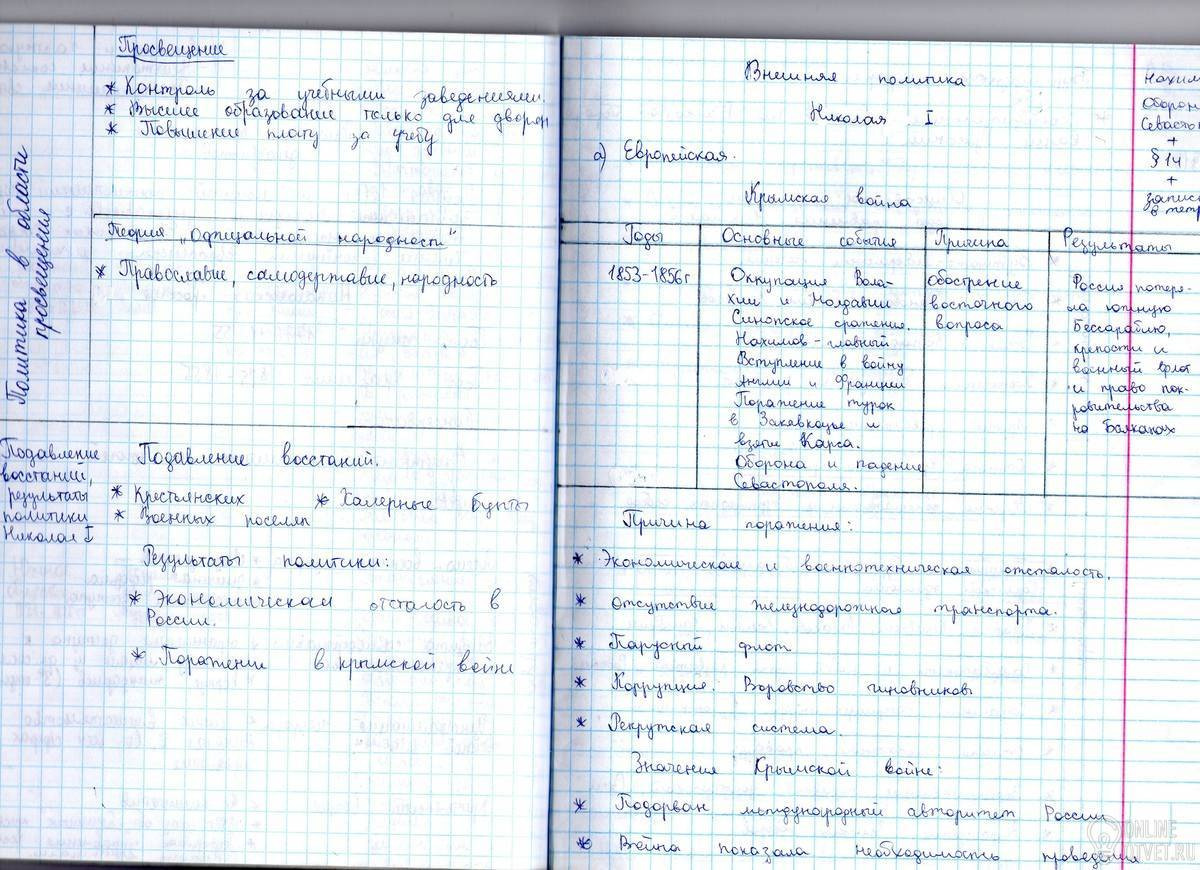 Просвещение
* Контроль за учебными заведениями.
* Высшее образование только для дворян
* Повышение плату за учебу
Политика в области
просвещения
Теория "Официальной народности"
* Православие, самодержавие, народность
Подавление
восстаний,
результаты
политики
Николая I
Подавление восстаний.
* Крестьянских * Халерные бунты
* Военных поселян
Результаты политики:
* Экономическая отсталость в
России.
* Поражение в крымской войне
Внешняя политика
Николая I
а) Европейская.
Крымская война
Годы Основные события Причина Результаты
1853-1856г
Оккупация Вала-
хии и Молдавии
Синопское сражения.
Нахимов - главный
Вступление в войну
Англии и Франции
Поражение турок
в Закавказье и
взятие Карса.
Оборона и падение
Севастополя.
обострение
восточного
вопроса
Россия потеря-
ла южную
Бессарабию,
крепости и
военный флот
и право пок-
ровительства
на Балканах
Причина поражения:
* Экономическая и военнотехническая отсталость.
* отсутствие железнодорожного транспорта.
* Парусный флот
* Коррупция. Воровство чиновников
* Рекрутская система.
Значения Крымской войне:
* Подорван международный авторитет России
* Война показала необходимость проведения
Нахим
Оборон
Севасто
+
§ 14
+
запис
в тетр
ONLINE
OTVET.RU